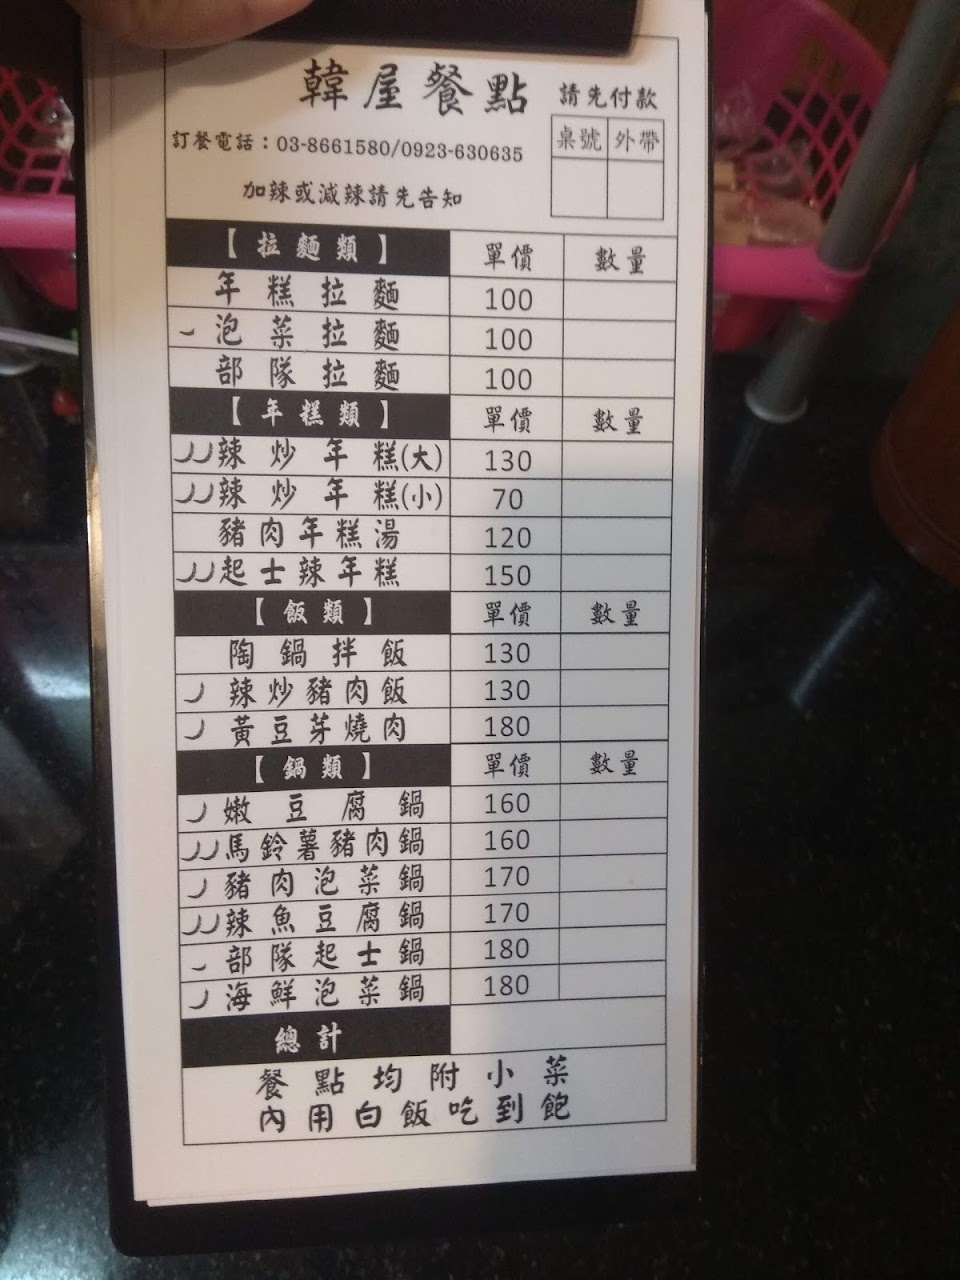 韓屋餐點
請先付款
訂餐電話：03-8661580/0923-630635
桌號 外帶
加辣或減辣請先告知
【拉麵類】 單價 數量
年糕拉麵 100
泡菜拉麵 100
部隊拉麵 100
【年糕類】 單價 數量
辣炒年糕(大) 130
辣炒年糕(小) 70
豬肉年糕湯 120
起士辣年糕 150
【飯類】 單價 數量
陶鍋拌飯 130
辣炒豬肉飯 130
黃豆芽燒肉 180
【鍋類】 單價 數量
嫩豆腐鍋 160
馬鈴薯豬肉鍋 160
豬肉泡菜鍋 170
辣魚豆腐鍋 170
部隊起士鍋 180
海鮮泡菜鍋 180
總計
餐點均附小菜
內用白飯吃到飽